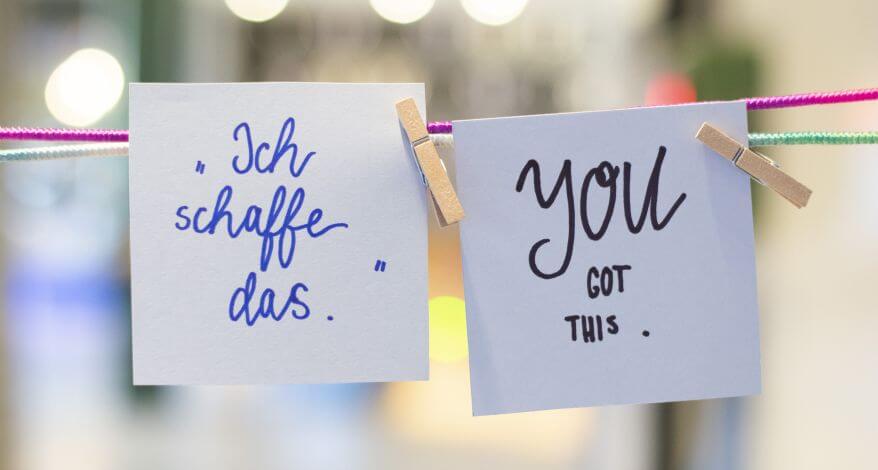 „Ich
schaffe
das."
YOU
GOT
THIS.